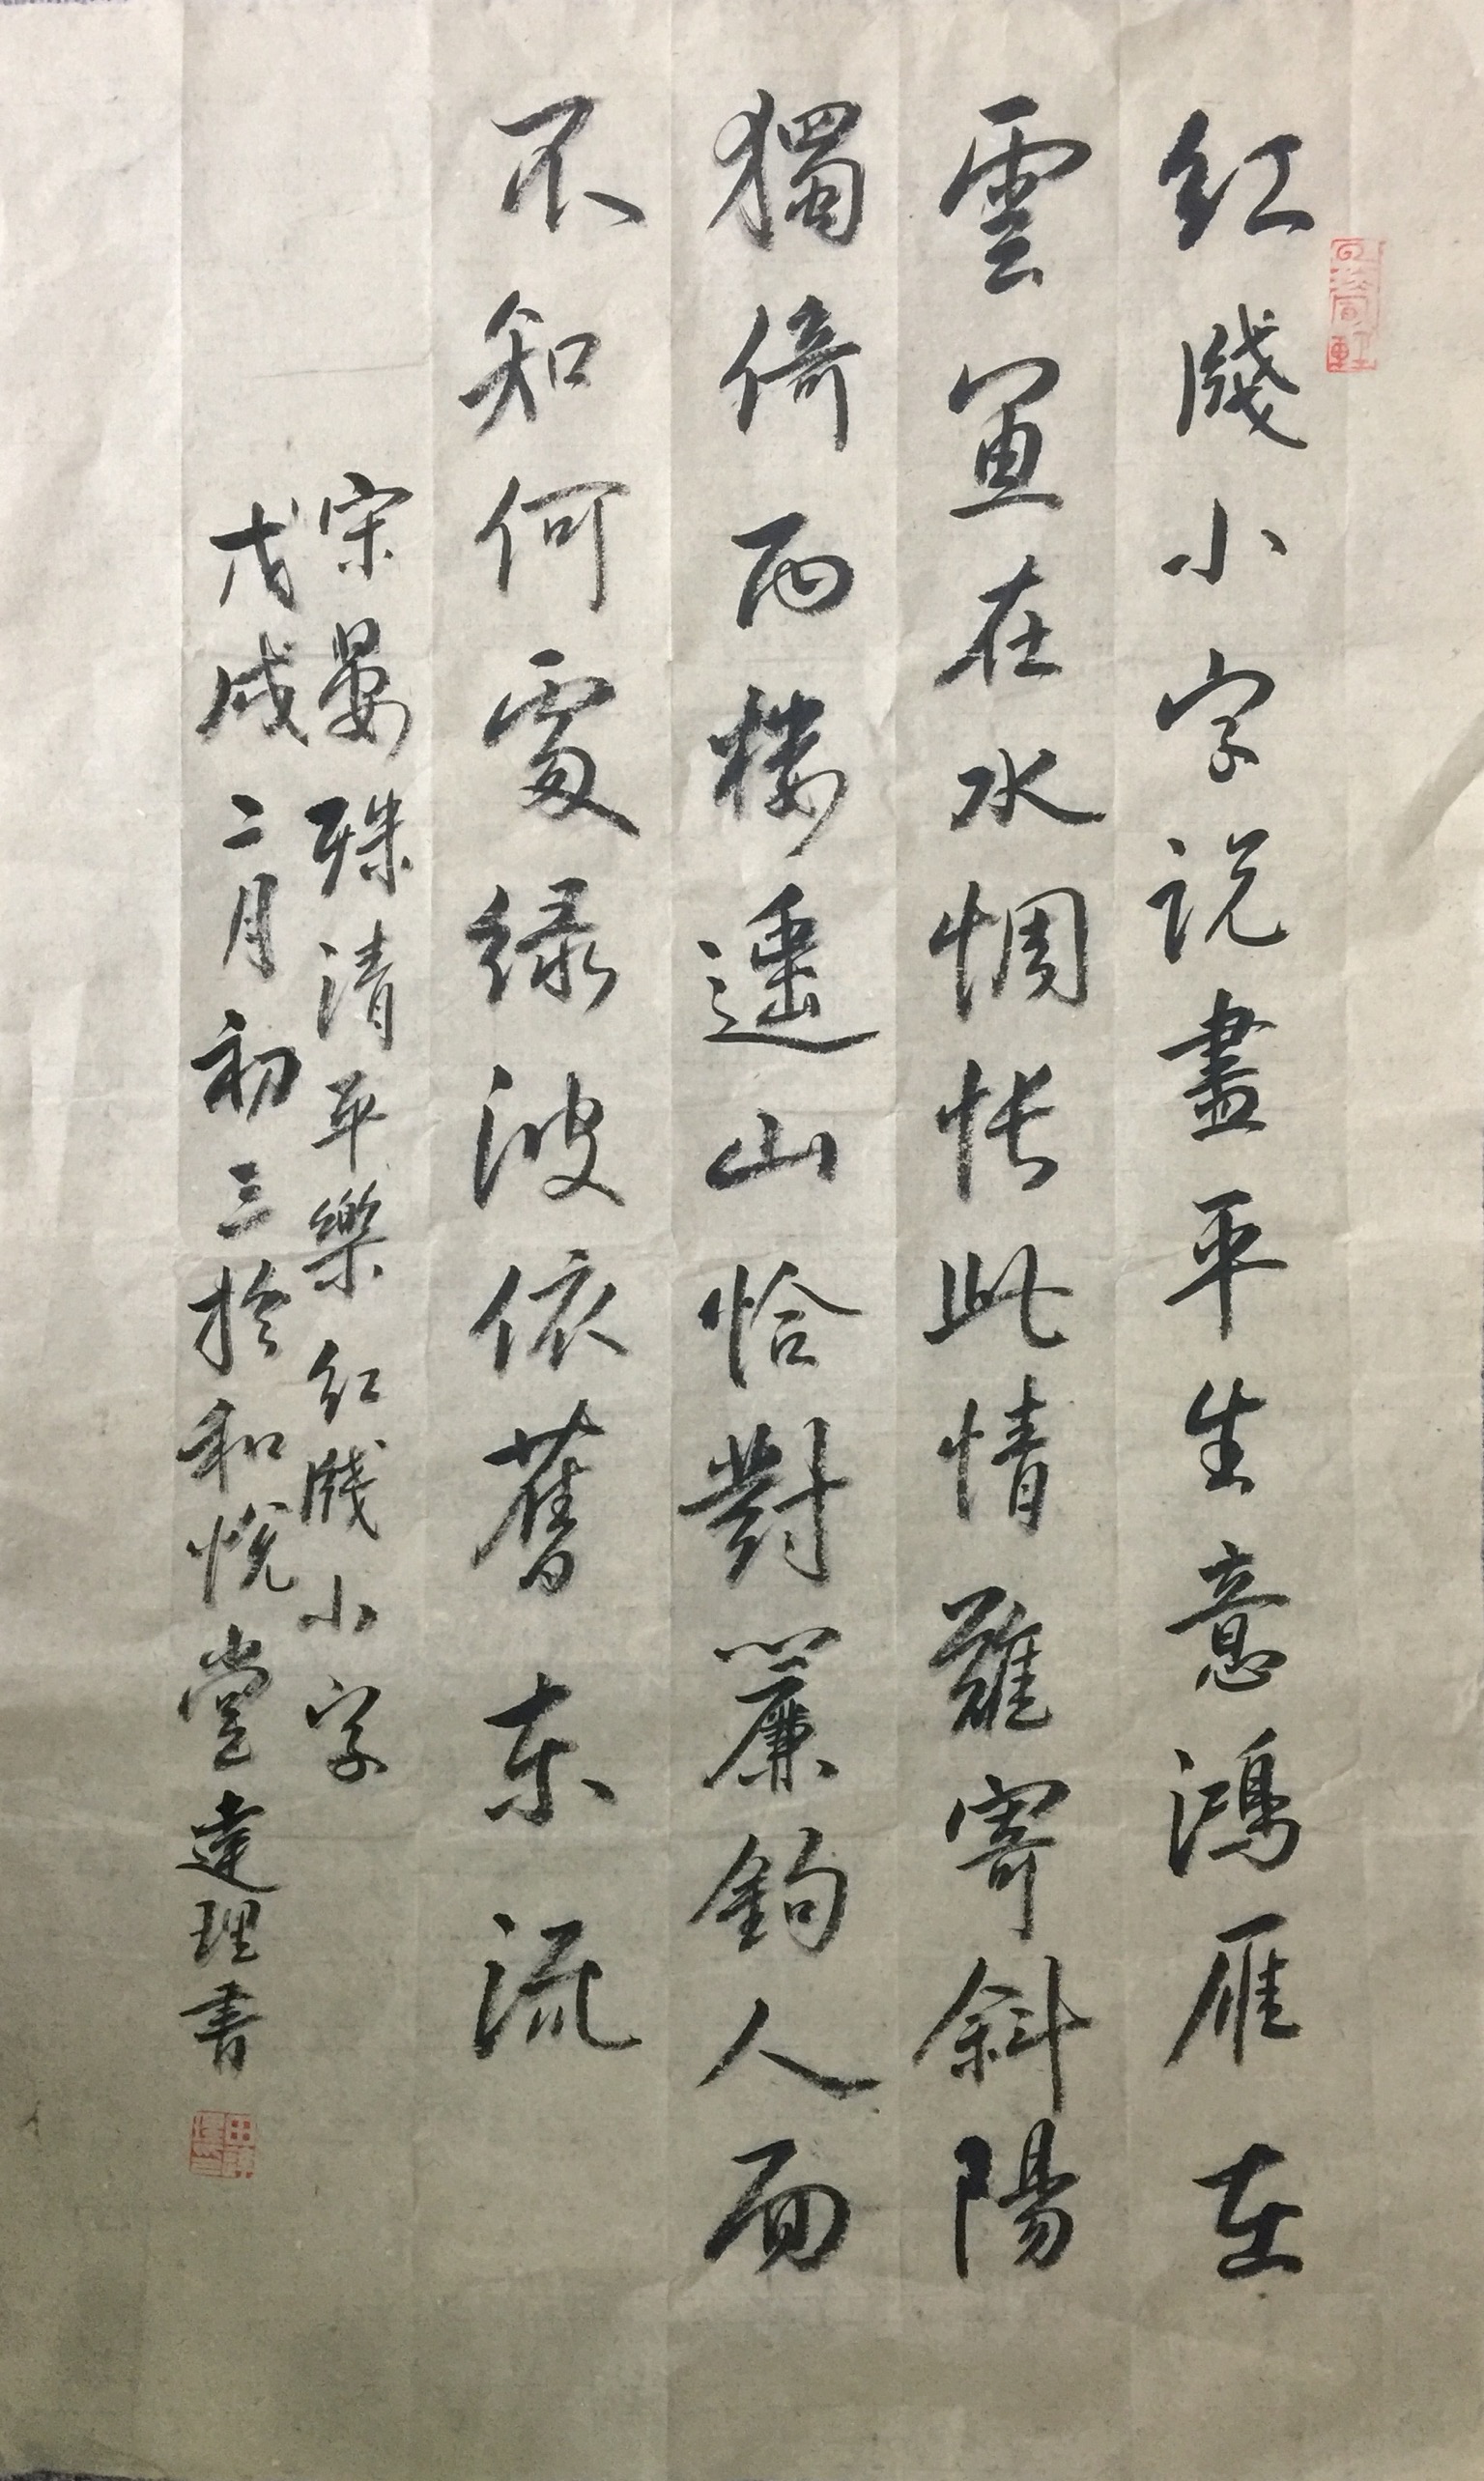 紅牋小字說盡平生意鴻雁在
雲魚在水惆悵此情難寄斜陽
獨倚西樓遥山恰對簾鈎人面
不知何處緑波依舊東流
宋晏殊清平樂紅牋小字
戊戌二月初三於和悅堂達理書